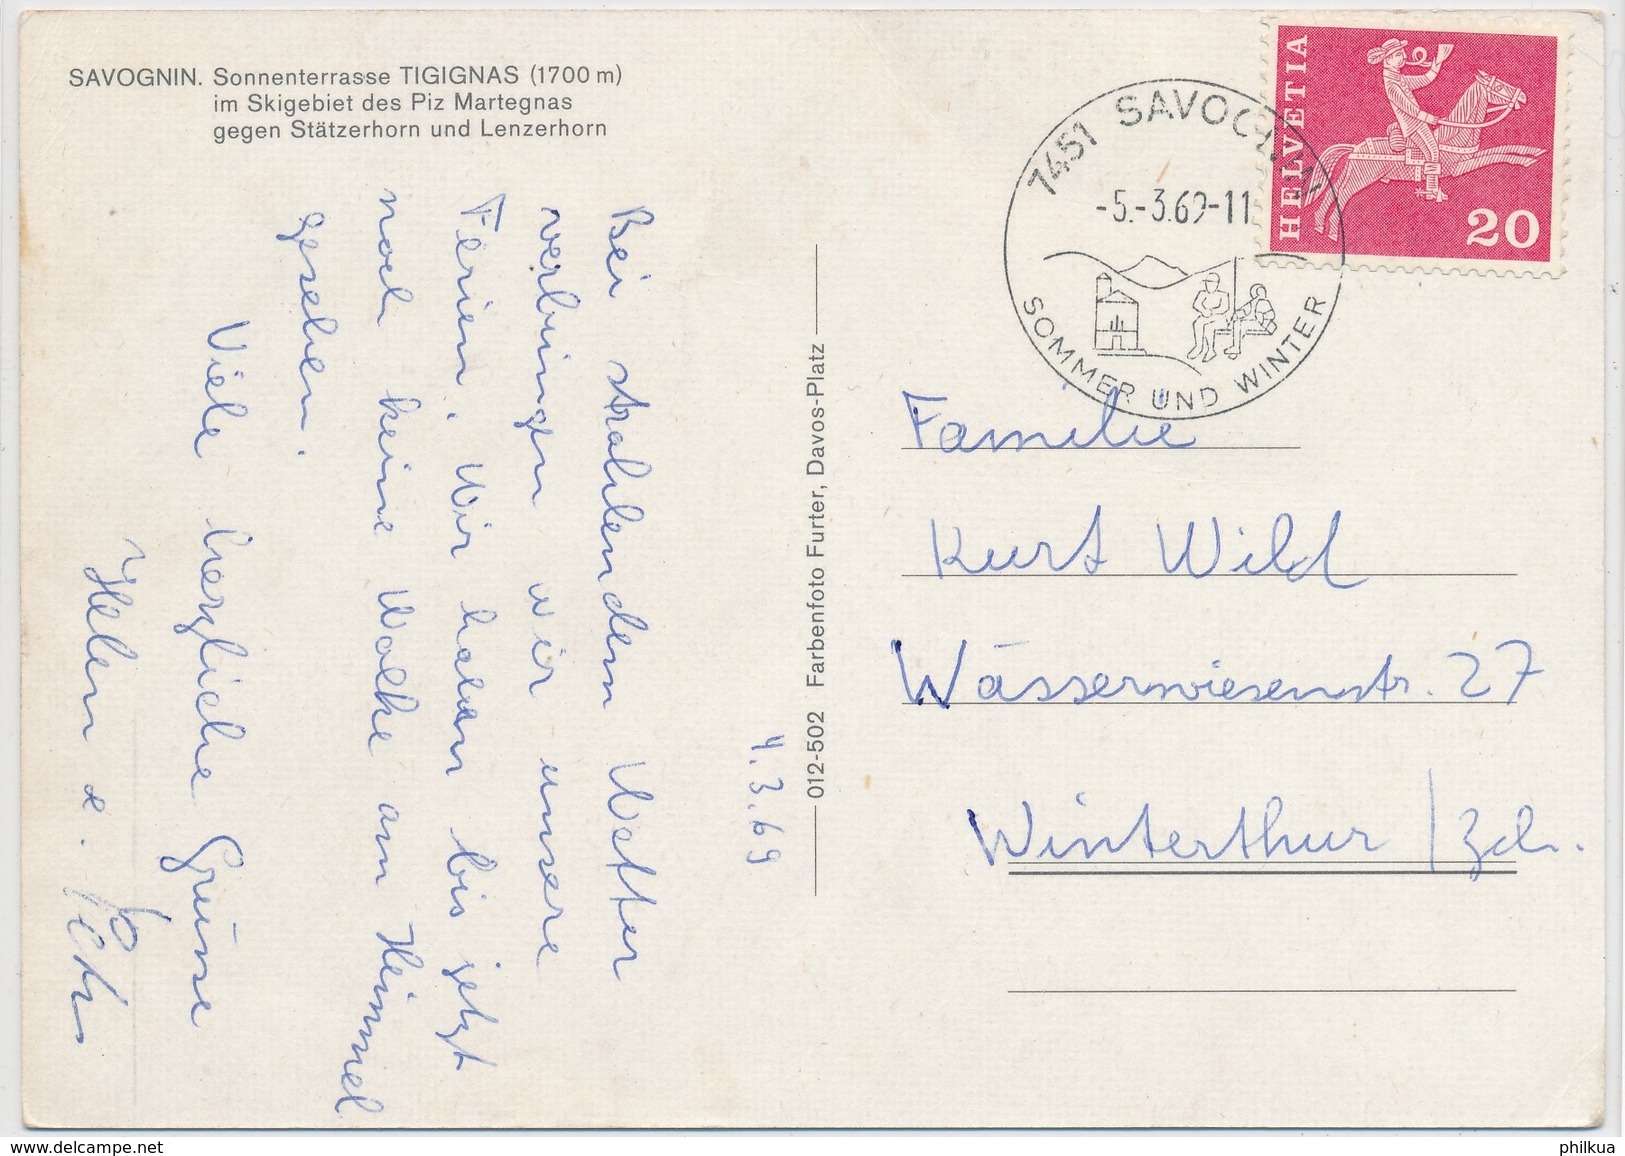 SAVOGNIN. Sonnenterrasse TIGIGNAS (1700 m)
im Skigebiet des Piz Martegnas
gegen Stätzerhorn und Lenzerhorn
4.3.69
Bei strahlendem Wetter
verbringen wir unsere
Ferien. Wir haben bis jetzt
noch keine Wolke am Himmel
gesehen.
Viele herzliche Grüsse
Helen &
012-502 Farbenfoto Furter, Davos-Platz
1451 SAVOGNIN
-5.-3.69-11
SOMMER UND WINTER
HELVETIA
20
Familie
Kurt Wild
Wässerwiesenstr. 27
Winterthur / Zch.
delcampe.net
philkua